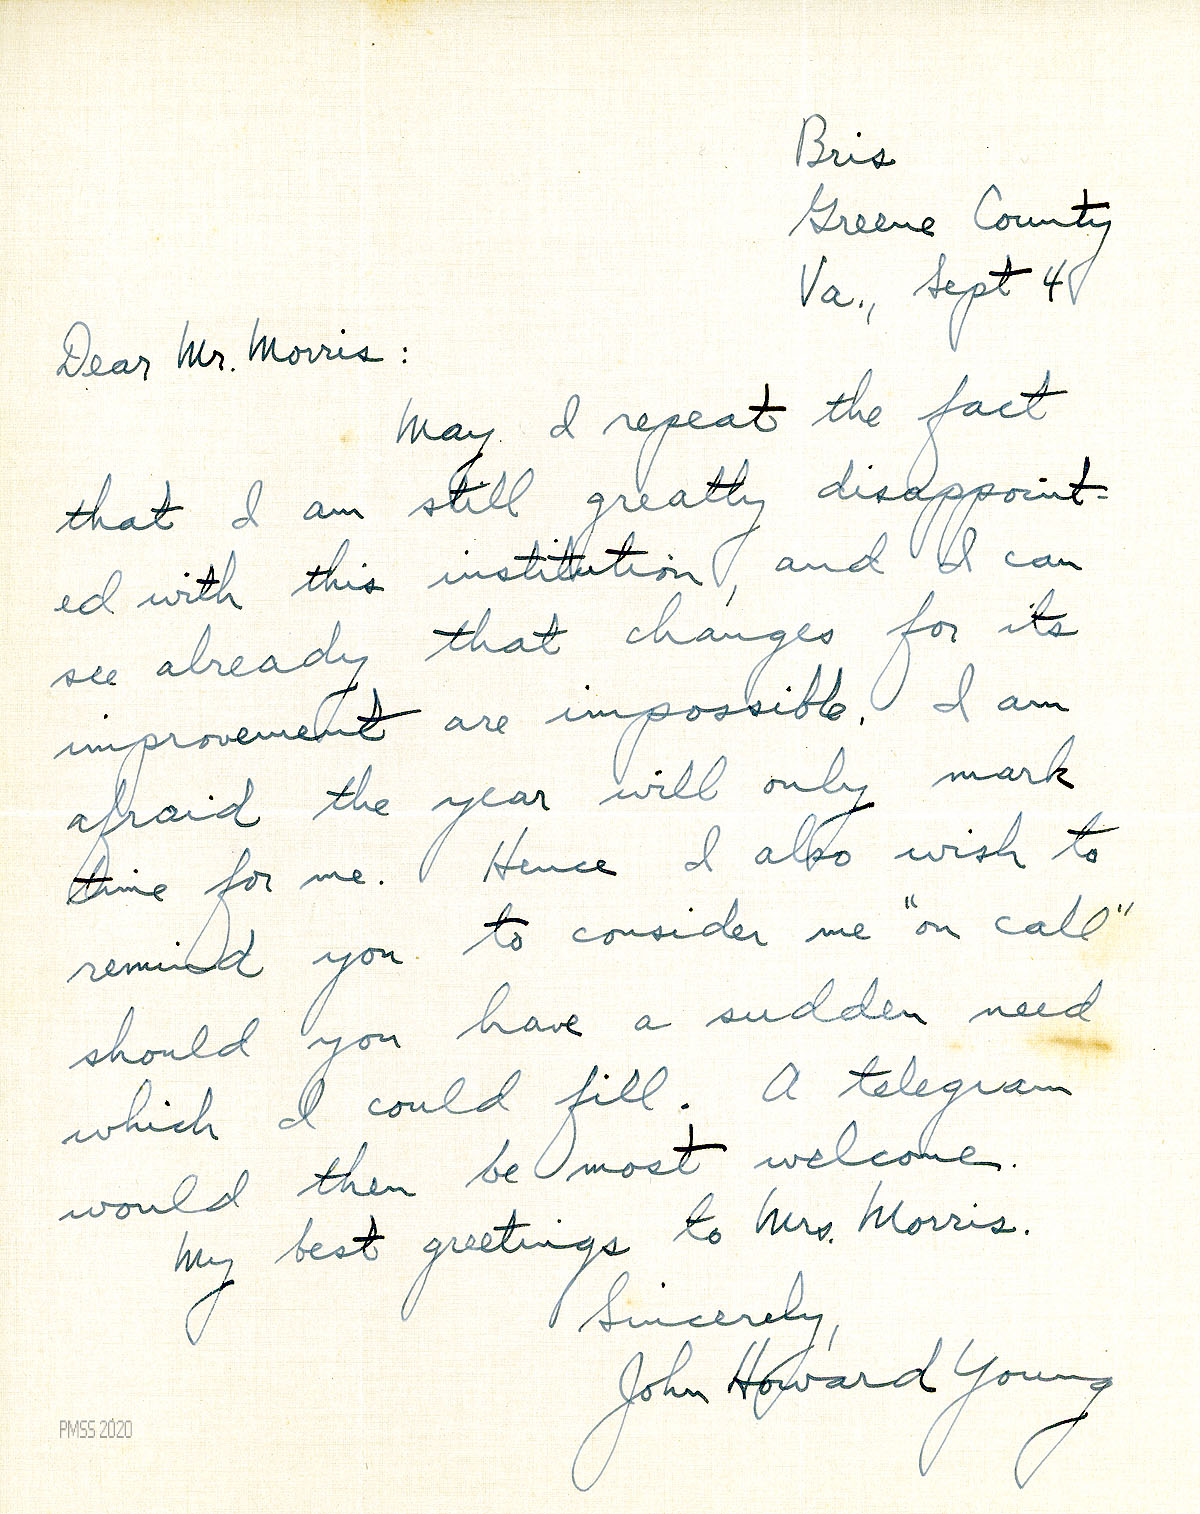 Bris
Greene County
Va., Sept 4
Dear Mr. Morris :
May I repeat the fact
that I am still greatly disappoint-
ed with this institution, and I can
see already that changes for its
improvement are impossible. I am
afraid the year will only mark
time for me. Hence I also wish to
remind you to consider me "on call"
should you have a sudden need
which I could fill. A telegram
would then be most welcome.
My best greetings to Mrs. Morris.
Sincerely,
John Howard Young
PMSS 2020